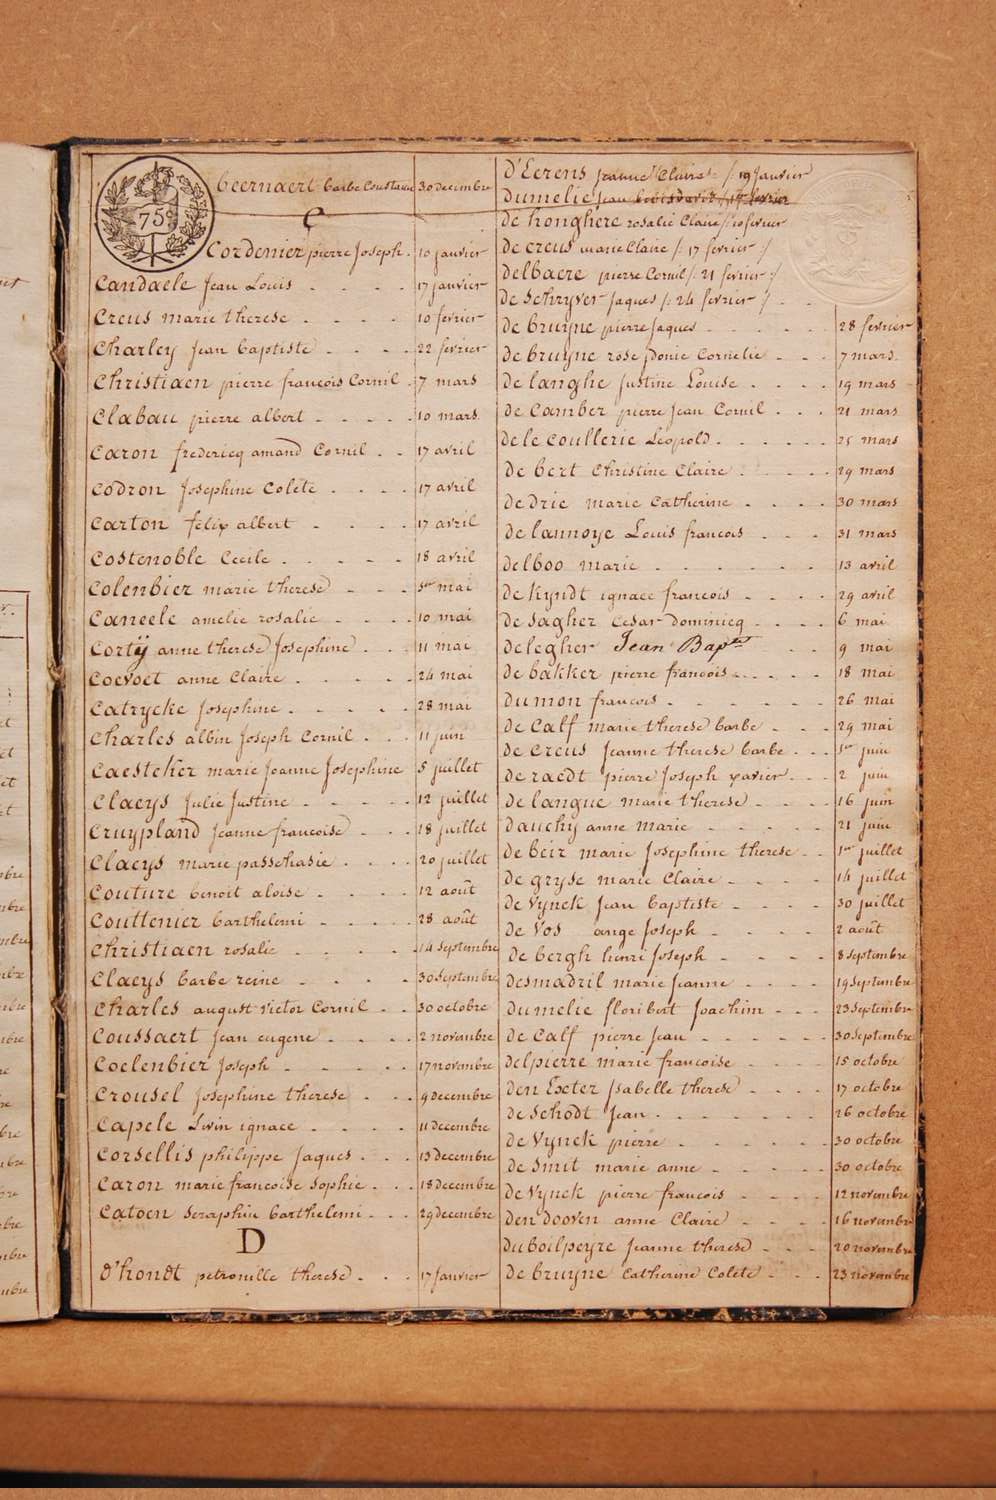 75c
Beernaert barbe Constance 30 decembre
C
Cordenier pierre Joseph 10 janvier
Candaele Jean Louis 17 janvier
Creus marie therese 10 fevrier
Charley Jean baptiste 22 fevrier
Christiaen pierre francois Cornil 7 mars
Clabau pierre albert 10 mars
Caron fredericq amand Cornil 17 avril
Codron Josephine Colete 17 avril
Carton felix albert 17 avril
Costenoble Cecile 18 avril
Colenbier marie therese 5er mai
Caneele amelie rosalie 10 mai
Cortÿ anne therese Josephine 11 mai
Coevoet anne Claire 24 mai
Catrycke Josephine 28 mai
Charles albin Joseph Cornil 11 juin
Caestcker marie Jeanne Josephine 5 juillet
Claeys Julie Justine 12 juillet
Cruypland Jeanne francoise 18 juillet
Claeys marie passchasie 20 juillet
Couture benoit aloise 12 août
Couttenier barthelemi 28 août
Christiaen rosalie 14 septembre
Claeys barbe reine 30 septembre
Charles august victor Cornil 30 octobre
Coussaert Jean eugene 2 novembre
Coelenbier Joseph 17 novembre
Crousel Josephine therese 9 decembre
Capele Livin ignace 11 decembre
Corsellis philippe Jaques 13 decembre
Caron marie francoise Sophie 18 decembre
Catoen Seraphin barthelemi 29 decembre
D
D'hondt petronille therese 17 Janvier
D'Eerens Jeanne Claire /: 19 Janvier
Dumelie Jean 17 fevrier
de honghere rosalie Claire /: 10 fevrier
de creus marie Claire /: 17 fevrier :/
delbaere pierre Cornil /: 21 fevrier :/
de Schryver Jaques /: 24 fevrier :/
de bruyne pierre Jaques 28 fevrier
de bruyne rose Donie Cornelie 7 mars
de langhe Justine Louise 19 mars
de Camber pierre Jean Cornil 21 mars
de le coullerie Léopold 25 mars
de bert Christine Claire 29 mars
de Drie marie Catherine 30 mars
de lannoye Louis francois 31 mars
delboo marie 13 avril
de Kyndt ignace francois 29 avril
de Sagher Cesar Dominicq 6 mai
de legher Jean Bapte 9 mai
de bakker pierre francois 18 mai
dumon francois 26 mai
de Calf marie therese barbe 29 mai
de creus Jeanne therese barbe 1er juin
de raedt pierre Joseph xavier 2 juin
de langue marie therese 16 juin
Dauchy anne marie 21 juin
de beir marie Josephine therese 1er juillet
de gryse marie Claire 14 juillet
de Vynck Jean baptiste 30 juillet
de Vos ange Joseph 2 août
de bergh henri Joseph 8 septembre
Desmadril marie Jeanne 19 septembre
Dumelie floribert Joachim 23 septembre
de Calf pierre Jean 30 septembre
Delpierre marie francoise 15 octobre
den Exter Isabelle therese 17 octobre
de Schodt Jean 26 octobre
de Vynck pierre 30 octobre
de Smit marie anne 30 octobre
de Vynck pierre francois 12 novembre
den dooven anne Claire 16 novembre
duboilpeyre Jeanne therese 20 novembre
de bruyne Catherine Colete 23 novembre